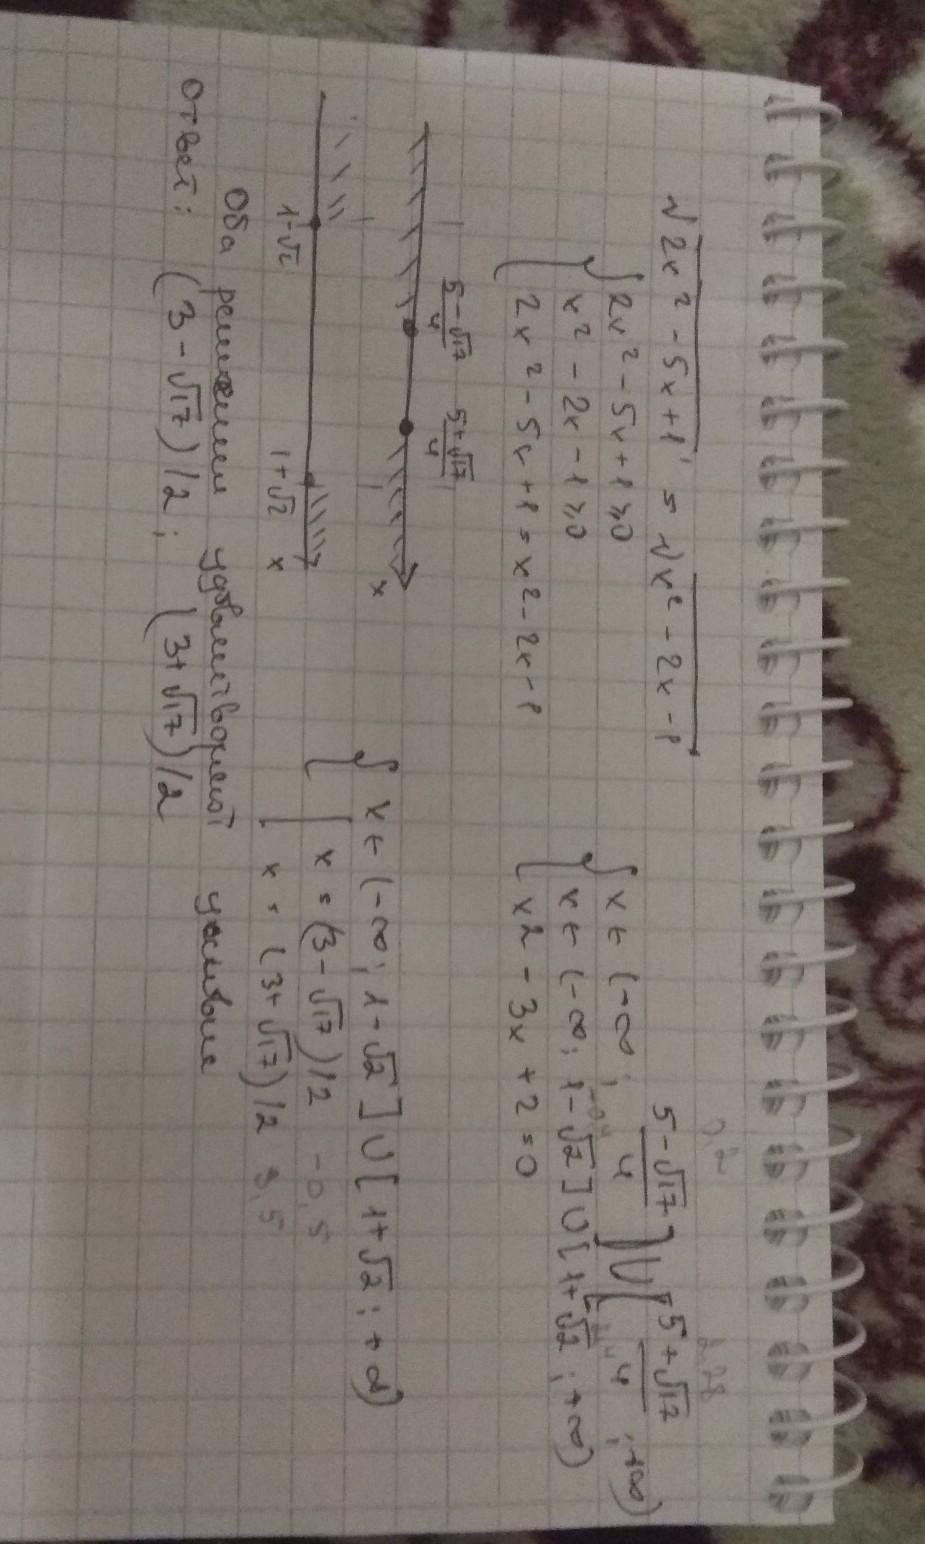 √2x² - 5x + 1 = √x² - 2x - 1
2x² - 5x + 1 ≥ 0
x² - 2x - 1 ≥ 0
2x² - 5x + 1 = x² - 2x - 1
0,2 2,28
x ∈ (-∞; (5-√17)/4] ∪ [(5+√17)/4; +∞)
x ∈ (-∞; 1-√2] ∪ [1+√2; +∞)
x2 - 3x + 2 = 0
(5-√17)/4 (5+√17)/4
x
1-√2 1+√2 x
x ∈ (-∞; 1-√2] ∪ [1+√2; +∞)
x = (3-√17)/2 -0,5
x = (3+√17)/2 3,5
Оба решения удовлетворяют условие
Ответ: (3-√17)/2; (3+√17)/2